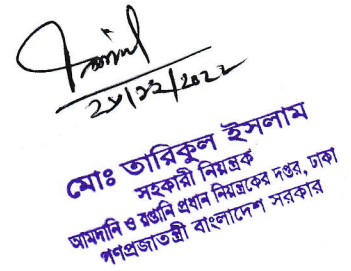 মোঃ তারিকুল ইসলাম
সহকারী নিয়ন্ত্রক
আমদানি ও রপ্তানি প্রধান নিয়ন্ত্রকের দপ্তর, ঢাকা
গণপ্রজাতন্ত্রী বাংলাদেশ সরকার